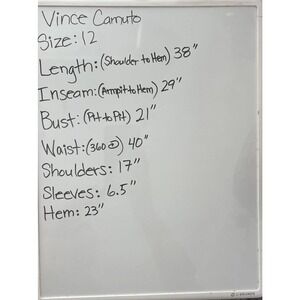 Vince Camuto
Size: 12
Length: (Shoulder to Hem) 38"
Inseam: (Armpit to Hem) 29"
Bust: (Pit to Pit) 21"
Waist: (360°) 40"
Shoulders: 17"
Sleeves: 6.5"
Hem: 23"